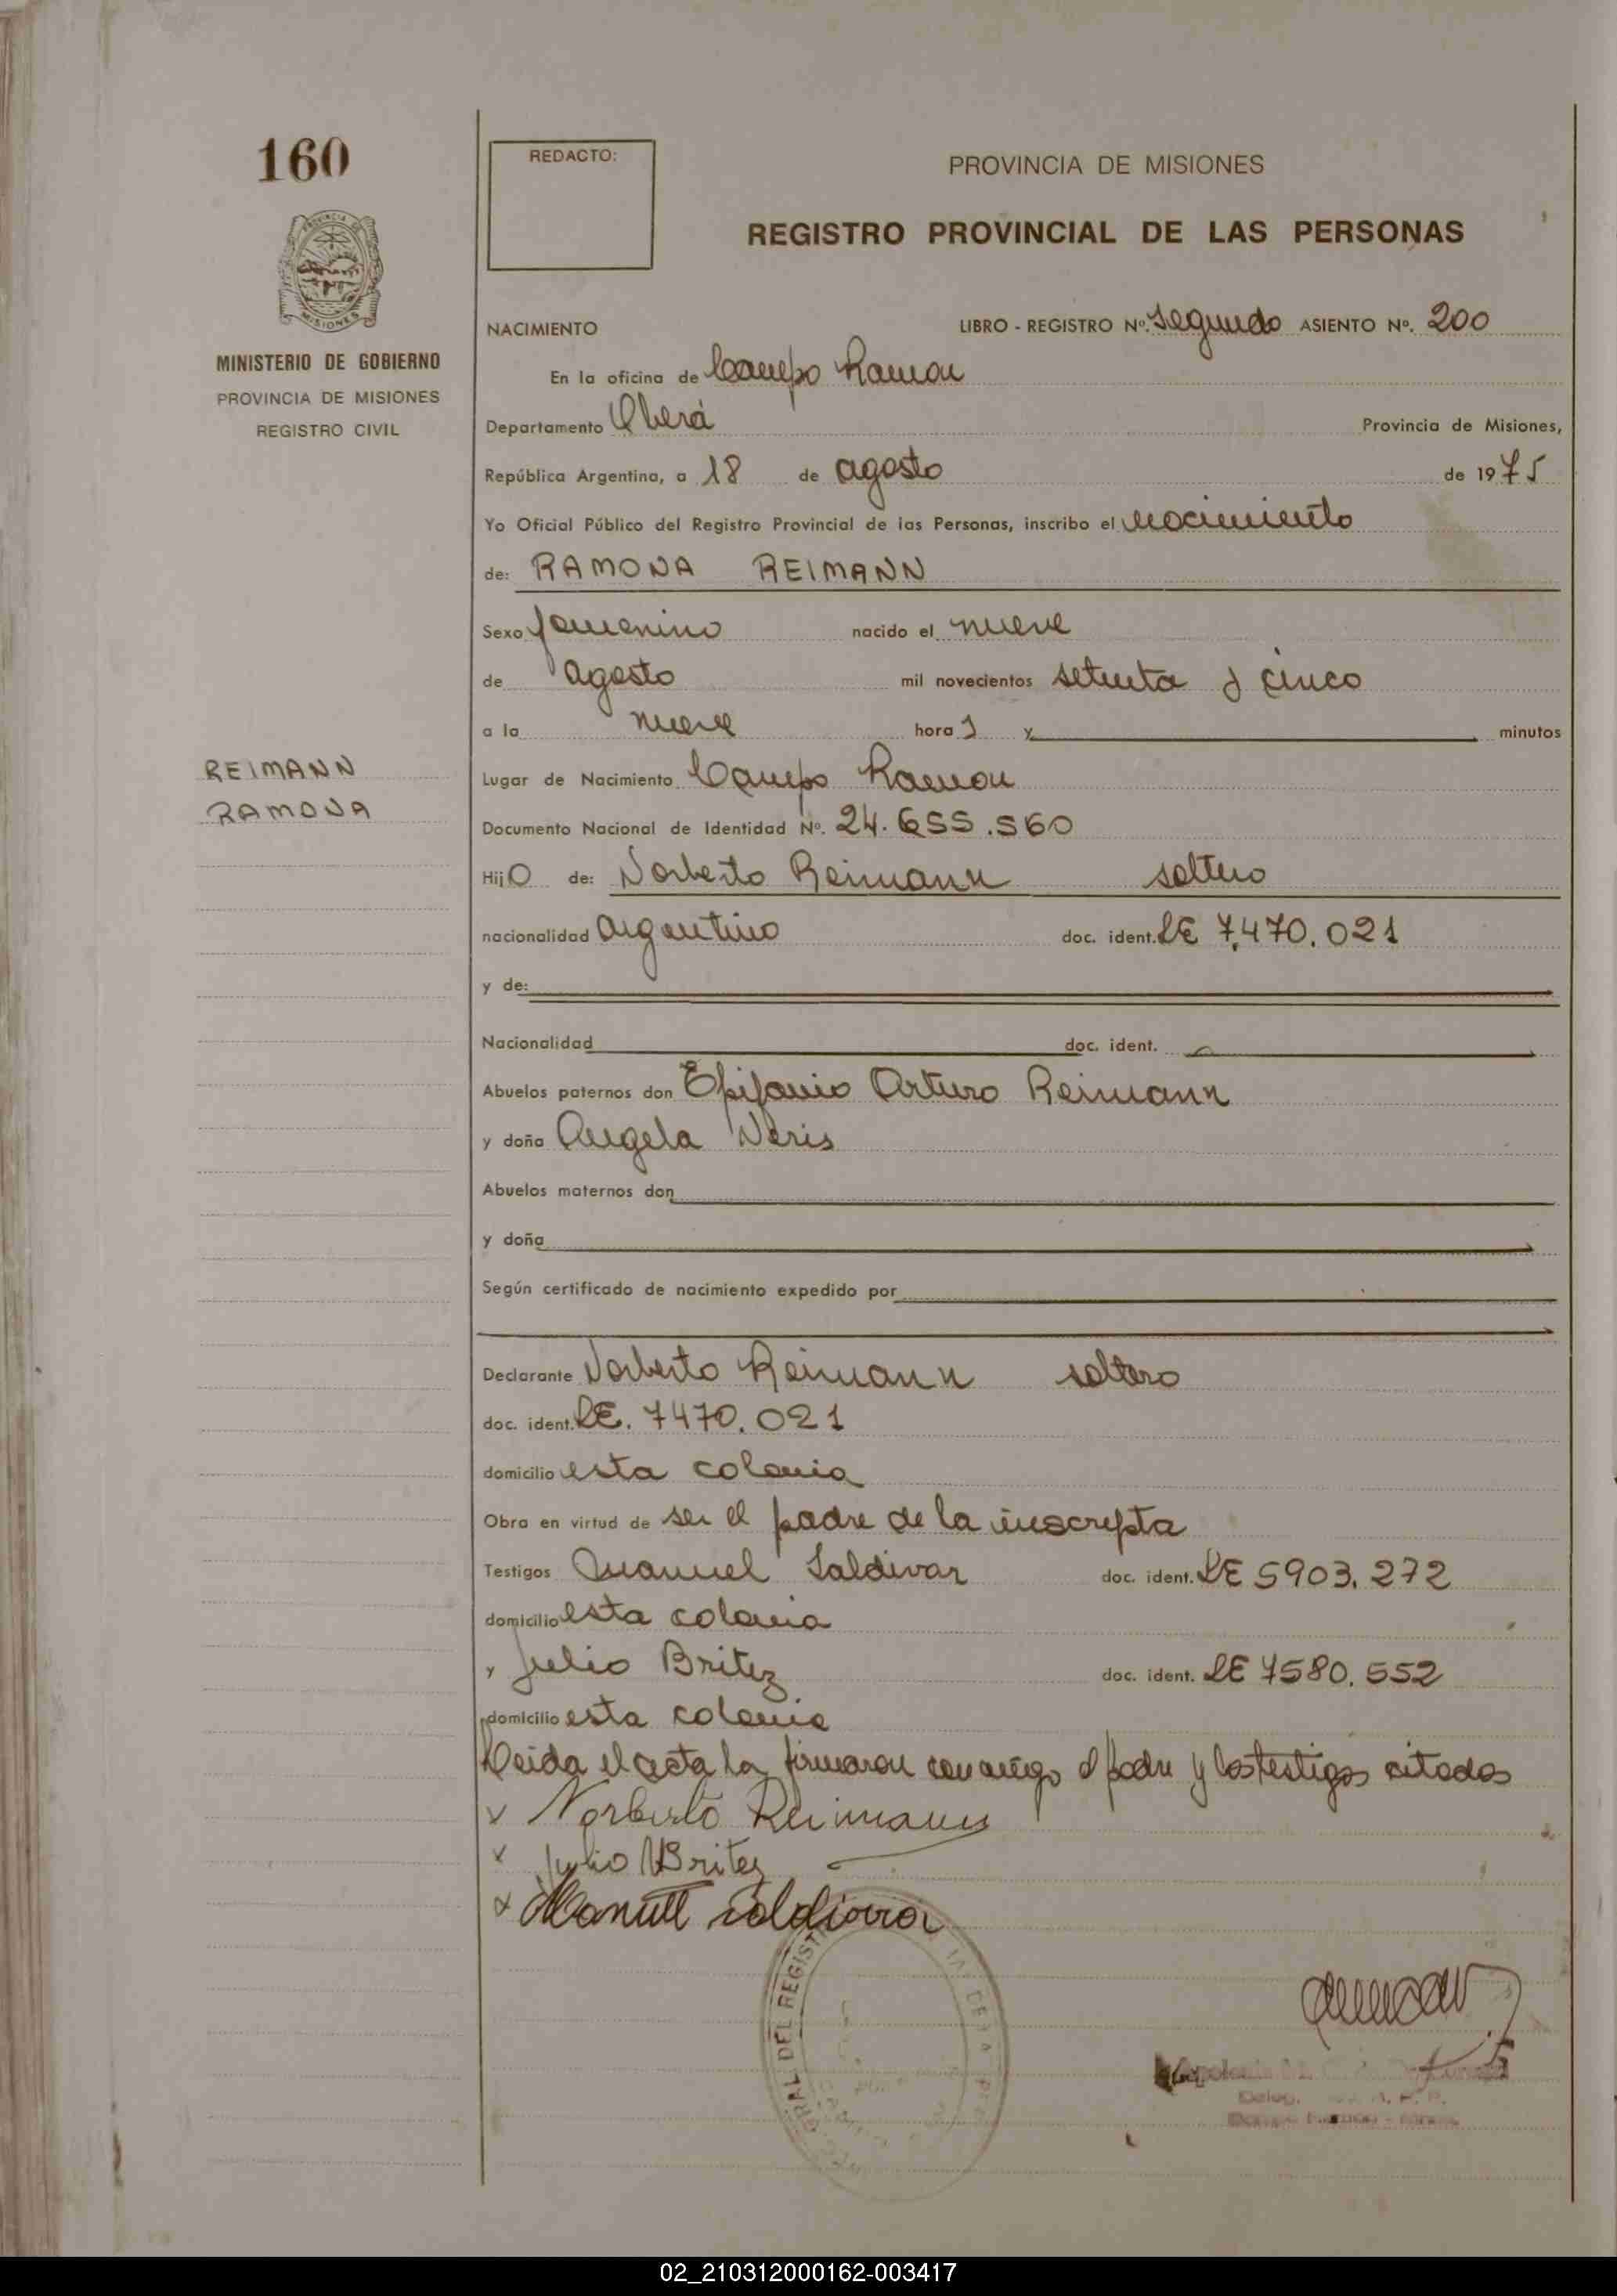 160
REDACTO:
PROVINCIA DE MISIONES
REGISTRO PROVINCIAL DE LAS PERSONAS
MISIONES
MINISTERIO DE GOBIERNO
PROVINCIA DE MISIONES
REGISTRO CIVIL
NACIMIENTO LIBRO - REGISTRO Nº. Segundo ASIENTO Nº. 200
En la oficina de Campo Ramon
Departamento Oberá Provincia de Misiones,
República Argentina, a 18 de agosto de 1975
Yo Oficial Público del Registro Provincial de las Personas, inscribo el nacimiento
de: RAMONA REIMANN
Sexo femenino nacido el nueve
de agosto mil novecientos setenta y cinco
a la nueve hora s y minutos
REIMANN
RAMONA
Lugar de Nacimiento Campo Ramon
Documento Nacional de Identidad Nº. 24.655.560
Hijo de: Norberto Reimann soltero
nacionalidad argentino doc. ident. LE 7.470.021
y de:
Nacionalidad doc. ident.
Abuelos paternos don Epifanio Arturo Reimann
y doña Angela Neris
Abuelos maternos don
y doña
Según certificado de nacimiento expedido por
Declarante Norberto Reimann soltero
doc. ident. LE. 7470.021
domicilio esta colonia
Obra en virtud de ser el padre de la inscrepta
Testigos Manuel Saldivar doc. ident. LE 5903.272
domicilio esta colonia
y Julio Britez doc. ident. LE 7580.552
domicilio esta colonia
Leida el acta la firmaron conmigo el padre y los testigos citados
x Norberto Reimann
x Julio Britez
x Manuel Saldivar
GRAL DEL REGISTR
02_210312000162-003417